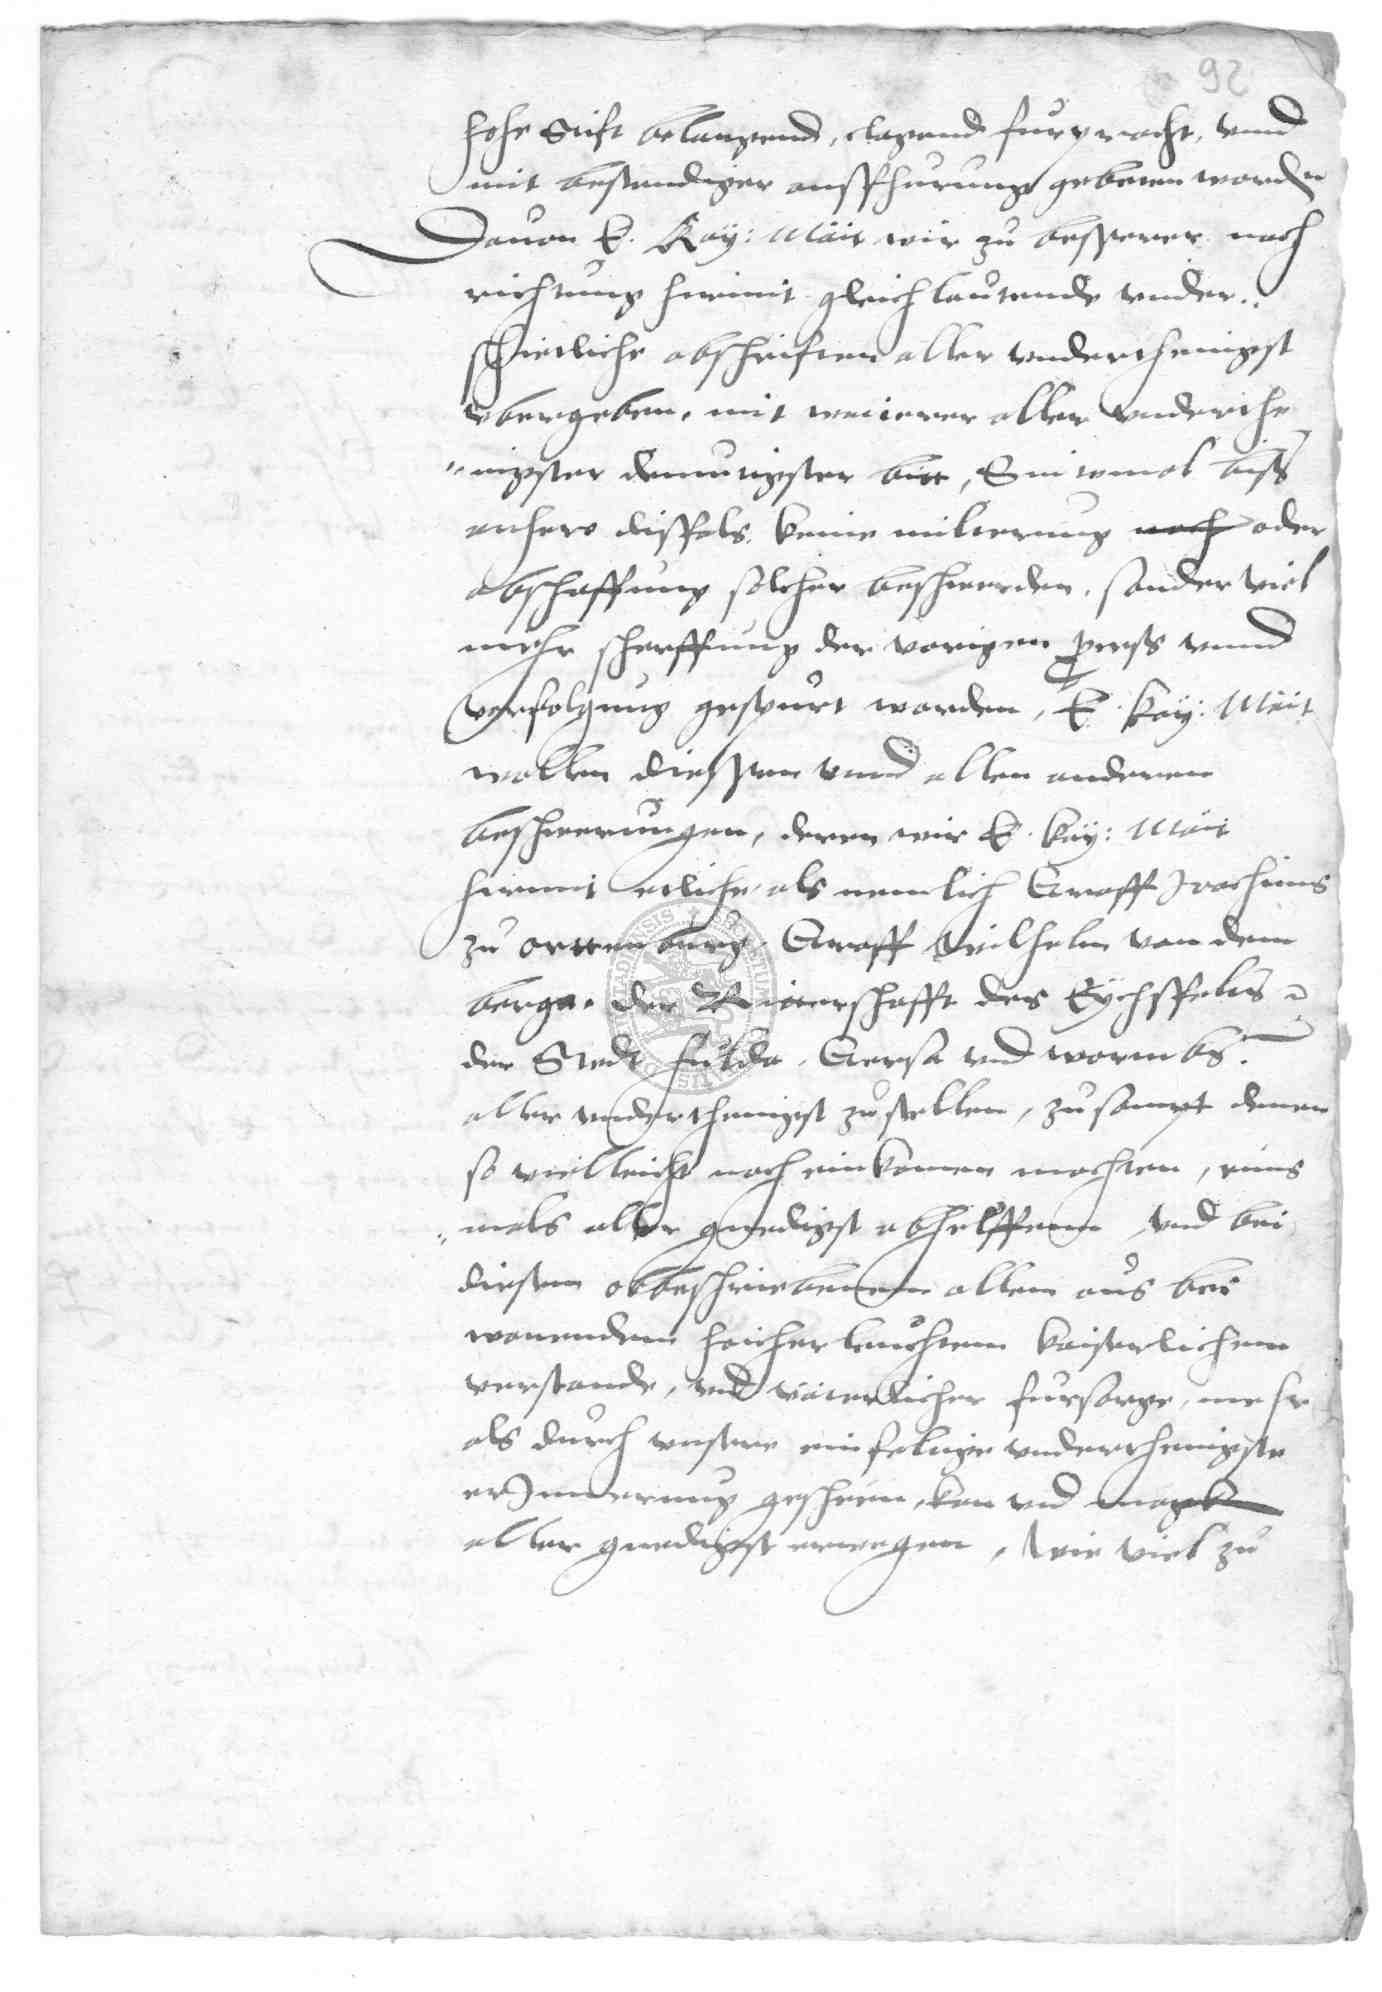 92
hohe Stift belangend, clagend furpracht, vnnd
mit bestendiger ausfhurung gebeten worden
Dauon E. Kay: Mait wir zu besserer nach
richtung hiemit gleichlautende vnder..
schietliche abschriften aller vnderthenigst
vbergeben, mit weiterer aller vnderthe
"nigster demutigster bitt, Sintemal biss
anhero dissfals keine milterung noch oder
abschaffung solcher beschwerden, sonder viel
mehr scherffung der vorigen press vnnd
verfolgung gespurt worden, E. kay: Mait
wollen diessen vnnd allen anderen
beschwerungen, deren wir E. kay: Mait
hiemit etliche als nemlich Graff Joachims
zu ortenburg, Graff Wilhelm von dem
berge, der Ritterschafft des Eychsfelts
der Stedt fulda, und wormbs
aller vnderthenigst zustellen, zusampt denen
so vielleicht noch einkomen mochten, eins
"mals aller gnedigst abhelffenn vnd bei
diesem obbeschriebenem allem aus bei
wonendem hocherleuchtem kaiserlichem
verstande, vnd väterlicher fursorge, mehr
als durch vnsere einfeltige vnderthenigste
erInnerung geschehen, kan vnd magk
aller gnedigst erwegen, wie viel zu